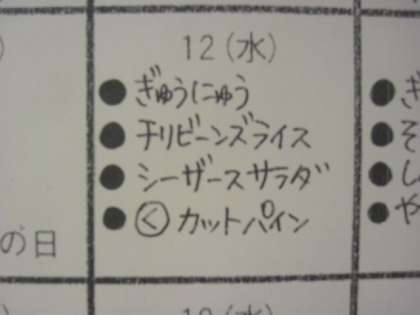 12(水)
●ぎゅうにゅう
●チリビーンズライス
●シーザースサラダ
●Ⓒカットパイン
の日
●ぎ
●そ
●し
●や